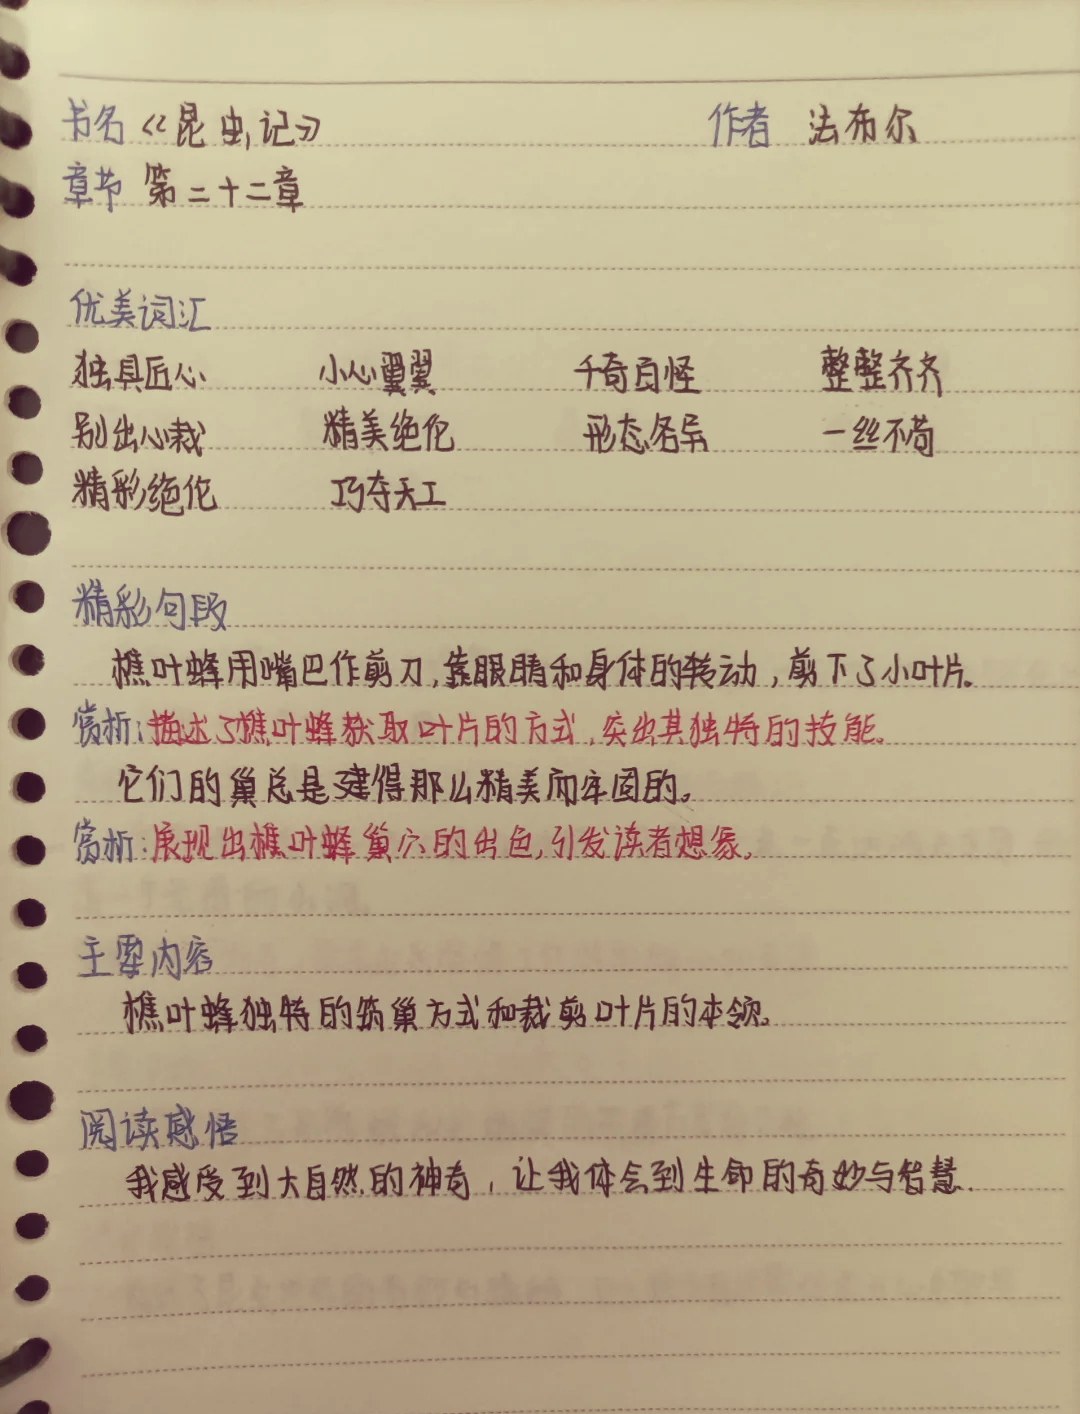 书名《昆虫记》 作者 法布尔
章节 第二十二章
优美词汇
独具匠心 小心翼翼 千奇百怪 整整齐齐
别出心裁 精美绝伦 形态各异 一丝不苟
精彩绝伦 巧夺天工
精彩句段
樵叶蜂用嘴巴作剪刀,靠眼睛和身体的转动,剪下了小叶片。
赏析:描述了樵叶蜂获取叶片的方式,突出其独特的技能。
它们的巢总是建得那么精美而牢固的。
赏析:展现出樵叶蜂巢穴的出色,引发读者想象。
主要内容
樵叶蜂独特的筑巢方式和裁剪叶片的本领。
阅读感悟
我感受到大自然的神奇,让我体会到生命的奇妙与智慧.